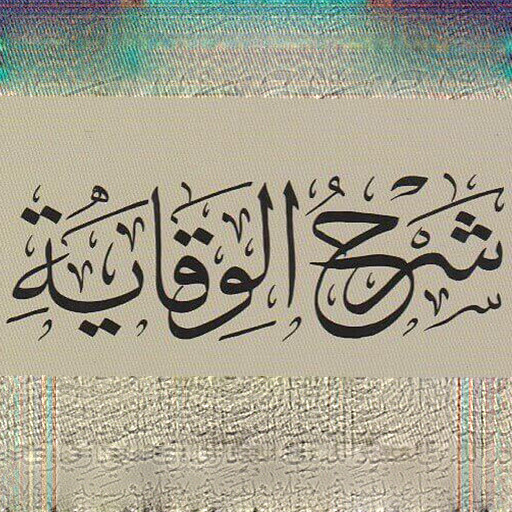 شَرْحُ الوِقَايَةِ